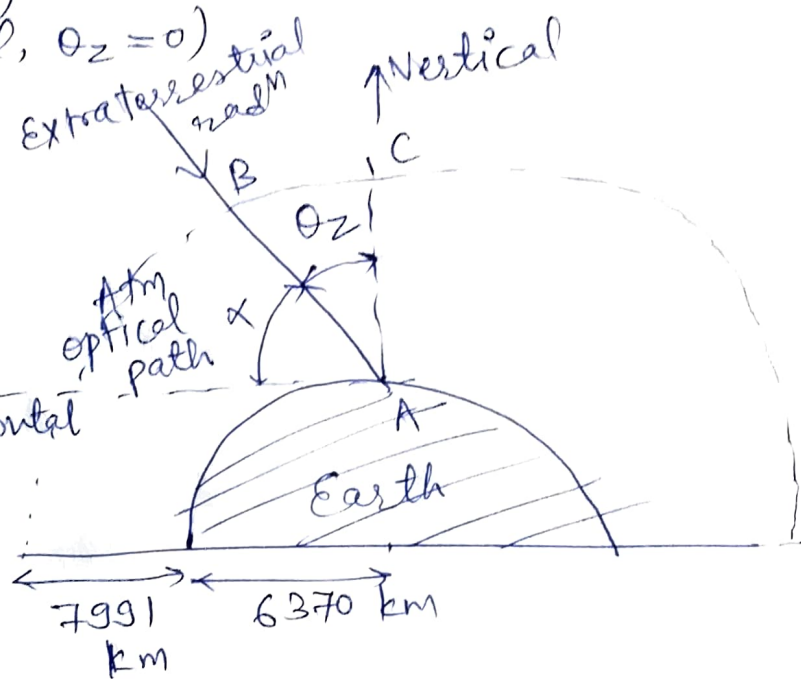 , θz = 0)
Extraterrestrial
radⁿ
Vertical
B
C
θz
Atm
optical
path
α
ontal
A
Earth
7991
km
6370 km